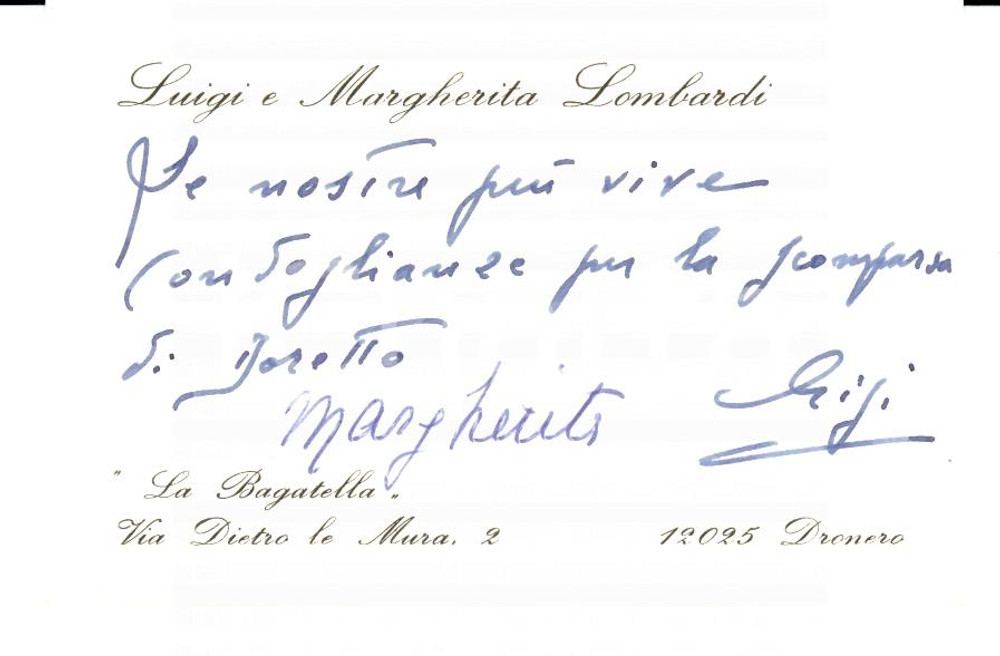 Luigi e Margherita Lombardi
Le nostre più vive
Condoglianze per la scomparsa
di Doretto
Margherita Gigi
" La Bagatella "
Via Dietro le Mura, 2 12025 Dronero